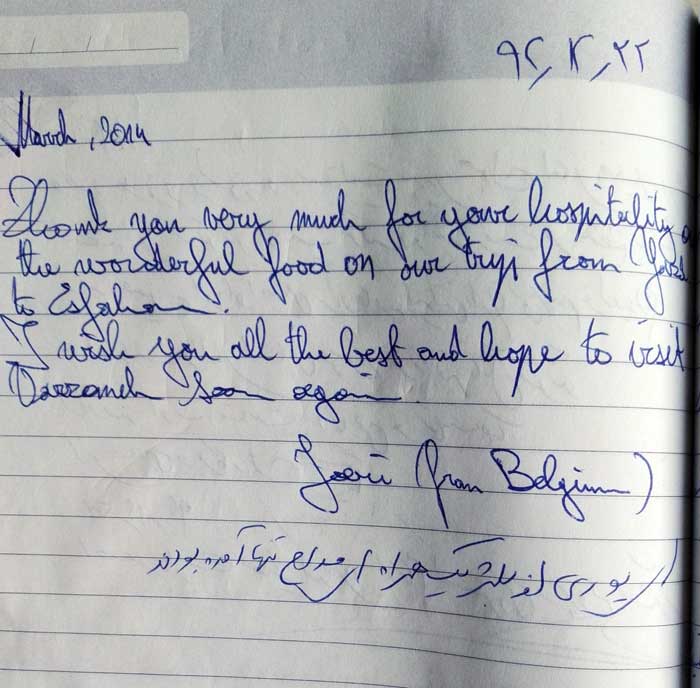 ۹۲٫۳٫۲۲
March, 2014
Thank you very much for your hospitality &
the wonderful food on our trip from Yazd
to Esfahan.
I wish you all the best and hope to visit
Varzaneh soon again.
Joeri (from Belgium)
یوری از بلژیک همراه از تنها آمده بودند